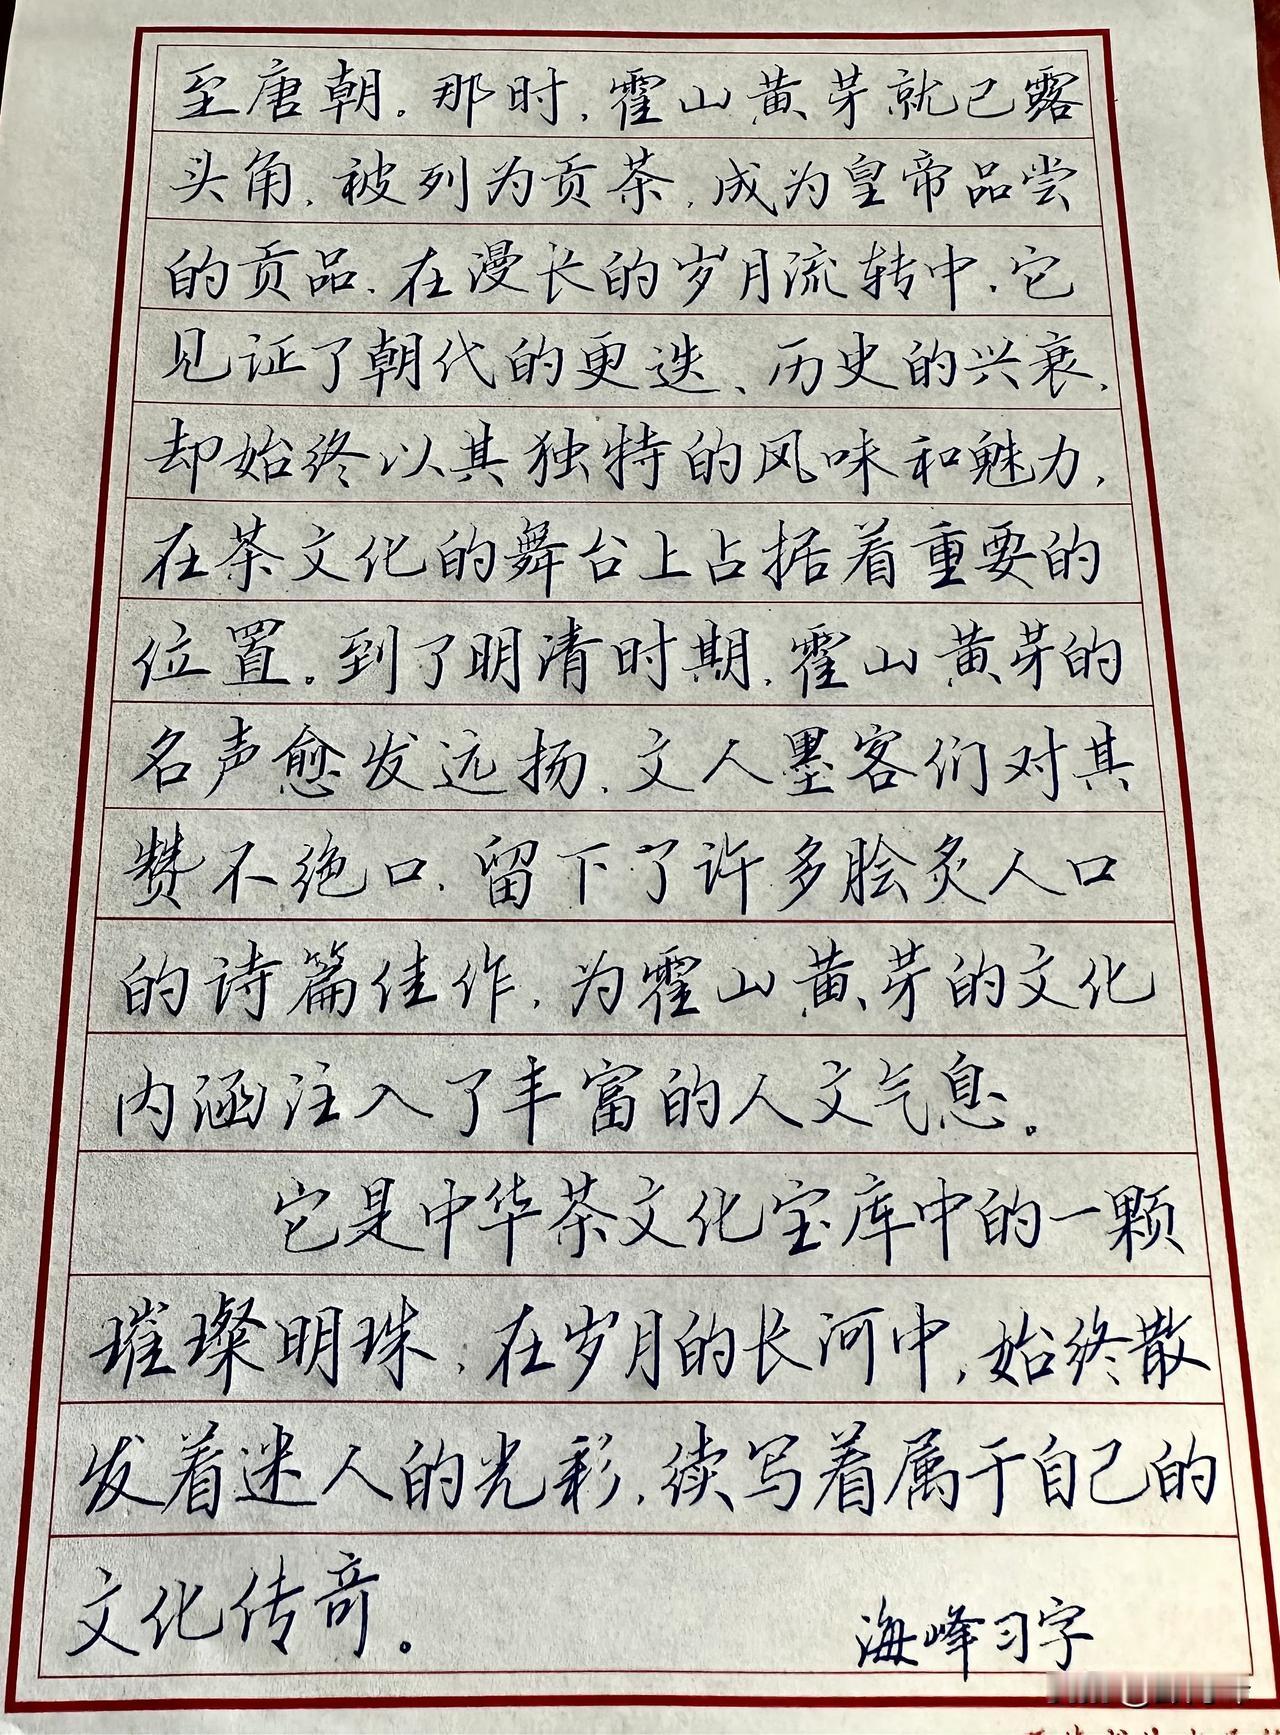 至唐朝。那时，霍山黄芽就已露
头角，被列为贡茶，成为皇帝品尝
的贡品，在漫长的岁月流转中，它
见证了朝代的更迭、历史的兴衰，
却始终以其独特的风味和魅力，
在茶文化的舞台上占据着重要的
位置。到了明清时期，霍山黄芽的
名声愈发远扬，文人墨客们对其
赞不绝口，留下了许多脍炙人口
的诗篇佳作，为霍山黄芽的文化
内涵注入了丰富的人文气息。
它是中华茶文化宝库中的一颗
璀璨明珠，在岁月的长河中，始终散
发着迷人的光彩，续写着属于自己的
文化传奇。
海峰习字